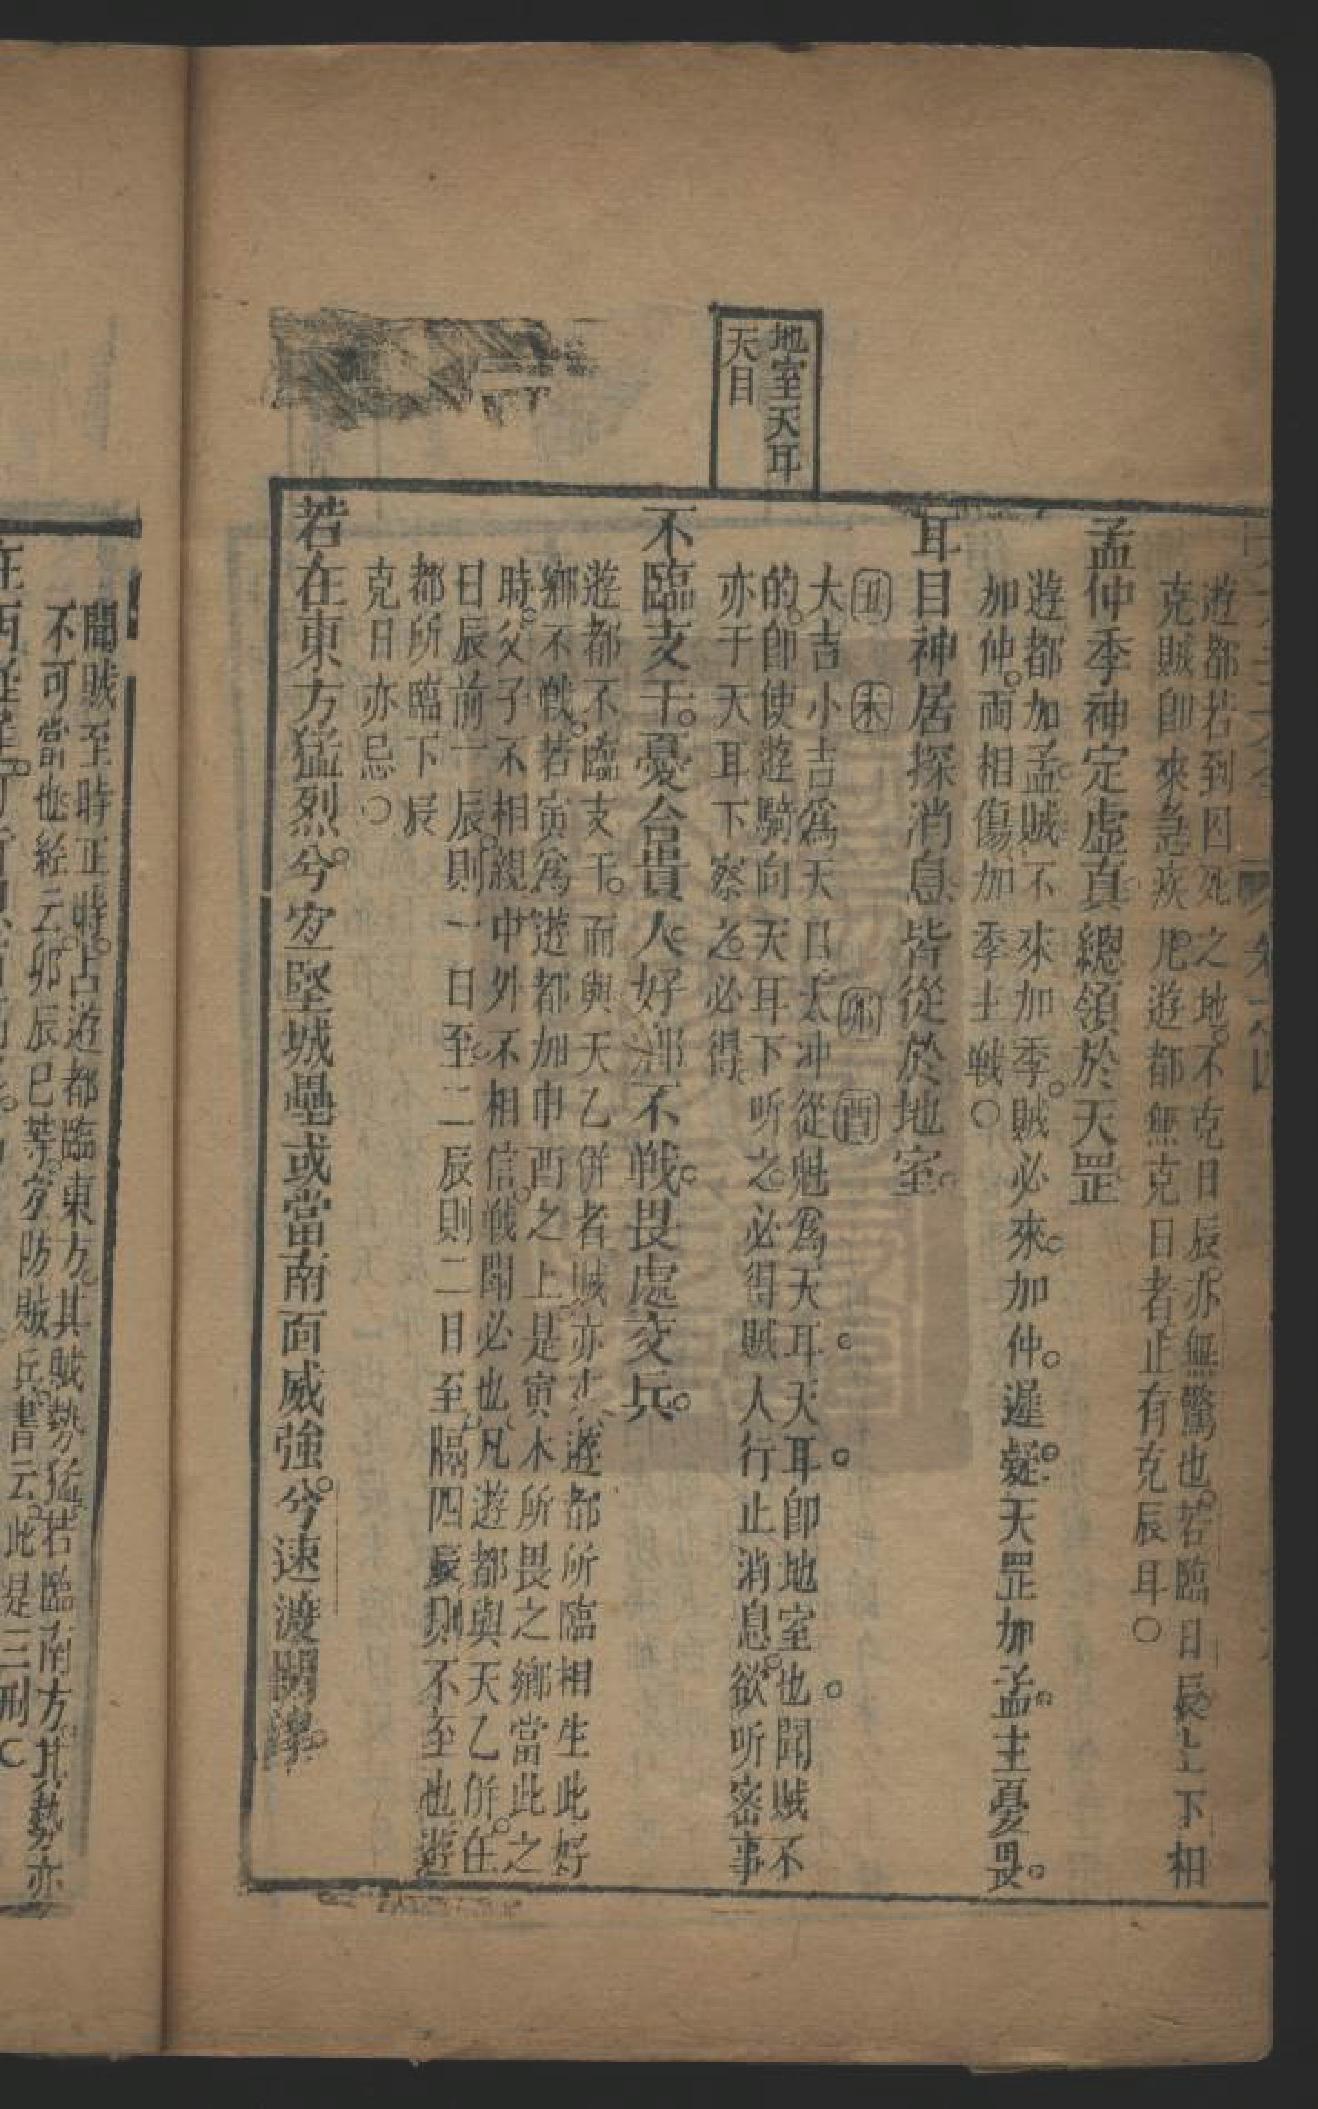 遊都若到囚死之地。不克日辰。亦無驚也。若臨日辰上下相
克賊卽來急疾凡遊都無克日者止有克辰耳〇
孟仲季神定虛真總領於天罡
遊都加孟。賊不來加季。賊必來。加仲。遲疑。天罡加孟。主憂畏。
加仲。両相傷加季主戰〇
耳目神居探消息皆從於地室。
丑 未 卯 酉
大吉小吉為天目太冲從魁為天耳天耳卽地室也聞賊不
的。卽使遊騎向天耳下听之必得賊人行止消息。欲听密事
亦于天耳下察之必得
地室天耳
天目
不臨支干。憂合貴人好鄉不戰。畏處交兵。
遊都不臨支干。而與天乙併者賊亦不遊都所臨相生此好
鄉不戰。若寅為遊都加申酉之上是寅木所畏之鄉當此之
時。父子不相親中外不相信戰鬪必也凡遊都與天乙併。在
日辰前一辰則一日至二辰則二日至隔四辰則不至也遊
都所臨下辰
克日亦忌〇
若在東方猛烈。兮宜堅城壘或當南面威強。兮速渡關梁。
聞賊至時正時。占遊都臨東方其賊勢猛若臨南方其勢亦
不可當也經云卯辰巳等宜防賊兵書云此是三刑